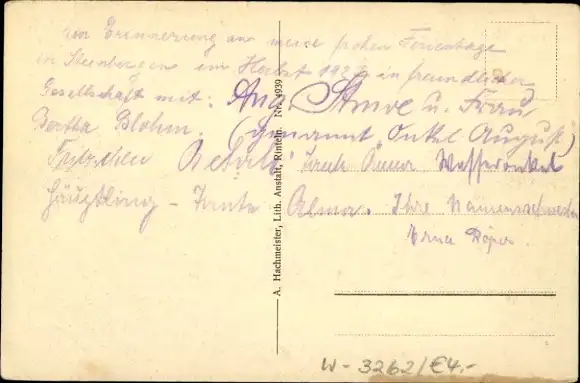 zur Erinnerung an meine frohen Ferientage
in Steinbergen im Herbst 1937 in freundlicher
Gesellschaft mit: Aug. u. Frau
Bertha Blohm. (genannt Onkel August)
Fritzchen Wasseronkel
Häuptling - Tante Alma. Ihre
Erna Röper.
A. Hachmeister, Lith. Anstalt, Rinteln. Nr. 4939
W-3262/€4,-